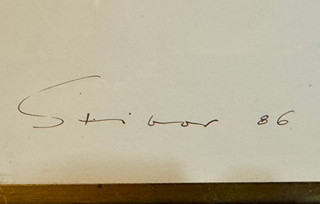 Stibor 86